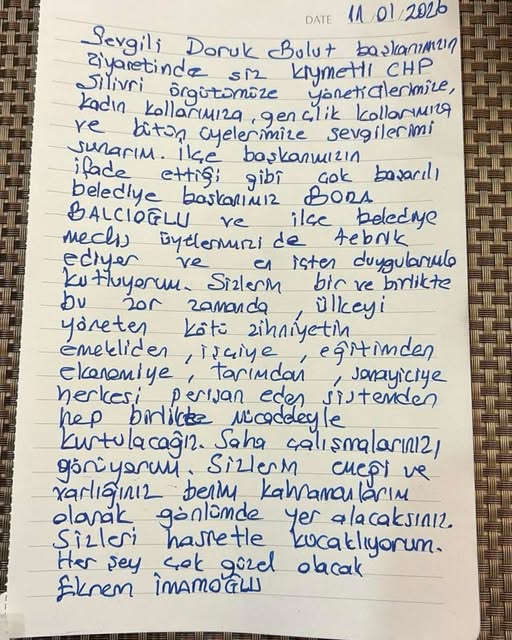 DATE 11/01/2026
Sevgili Doruk Bulut başkanımızın
ziyaretinde siz kıymetli CHP
Silivri örgütümüze yöneticilerimize,
kadın kollarımıza, gençlik kollarımıza
ve bütün üyelerimize sevgilerimi
sunarım. İlçe başkanımızın
ifade ettiği gibi çok başarılı
belediye başkanımız BORA
BALCIOĞLU ve ilçe belediye
meclis üyelerimizi de tebrik
ediyor ve en içten duygularımla
kutluyorum. Sizlerin bir ve birlikte
bu zor zamanda, ülkeyi
yöneten kötü zihniyetin
emekliden, işçiye, eğitimden
ekonomiye, tarımdan, sanayiciye
herkesi perişan eden sistemden
hep birlikte mücadeleyle
kurtulacağız. Saha çalışmalarınızı,
görüyorum. Sizlerin emeği ve
varlığınız benim kahramanlarım
olarak gönlümde yer alacaksınız.
Sizleri hasretle kucaklıyorum.
Her şey çok güzel olacak
Ekrem İMAMOĞLU